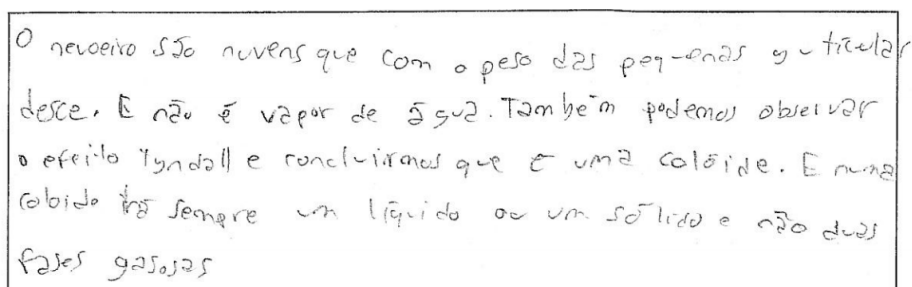 O nevoeiro são nuvens que com o peso das pequenas gutícular
desce. E não é vapor de água. Também podemos observar
o efeito Tyndall e concluirmos que é uma colóide. E numa
coloide há sempre um líquido ou um sólido e não duas
fases gasosas